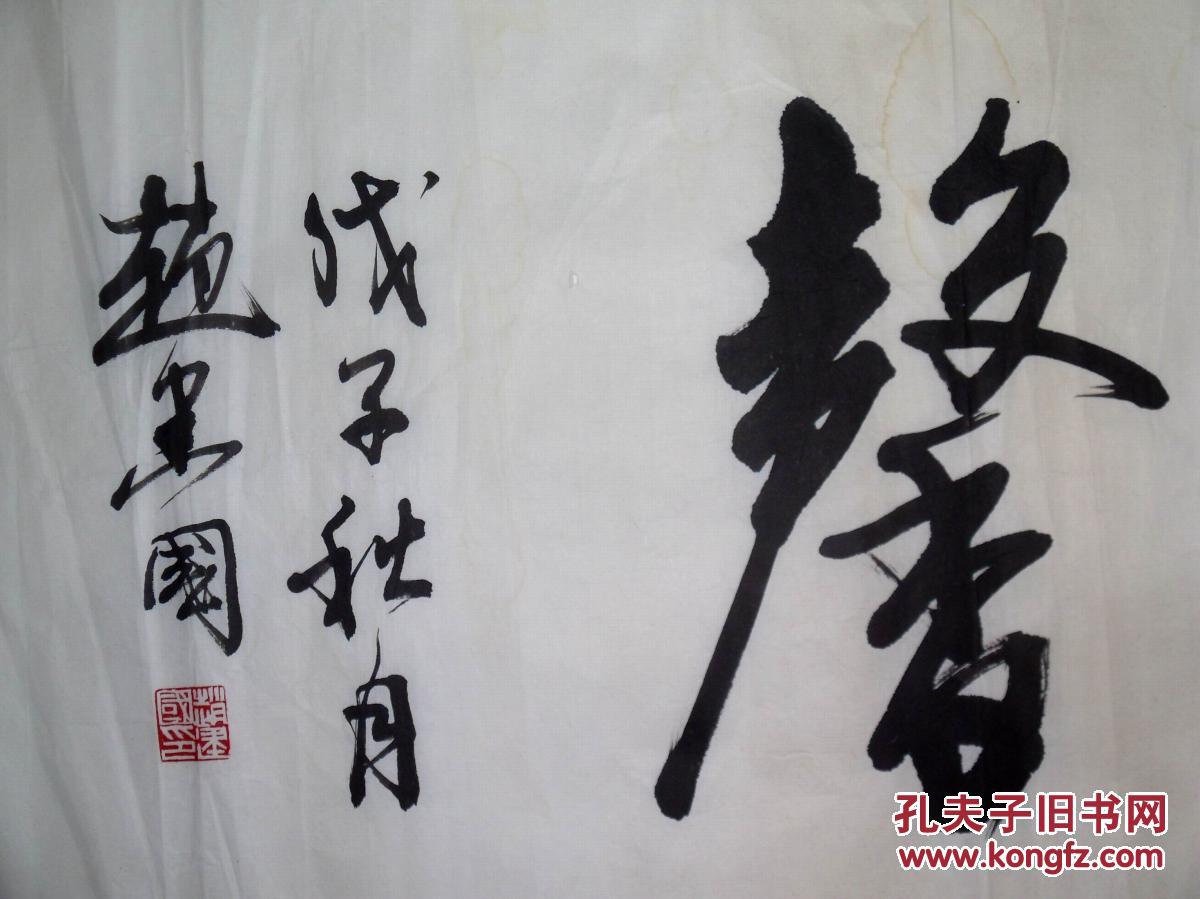 馨
戊子秋月
趙國
孔夫子旧书网
www.kongfz.com